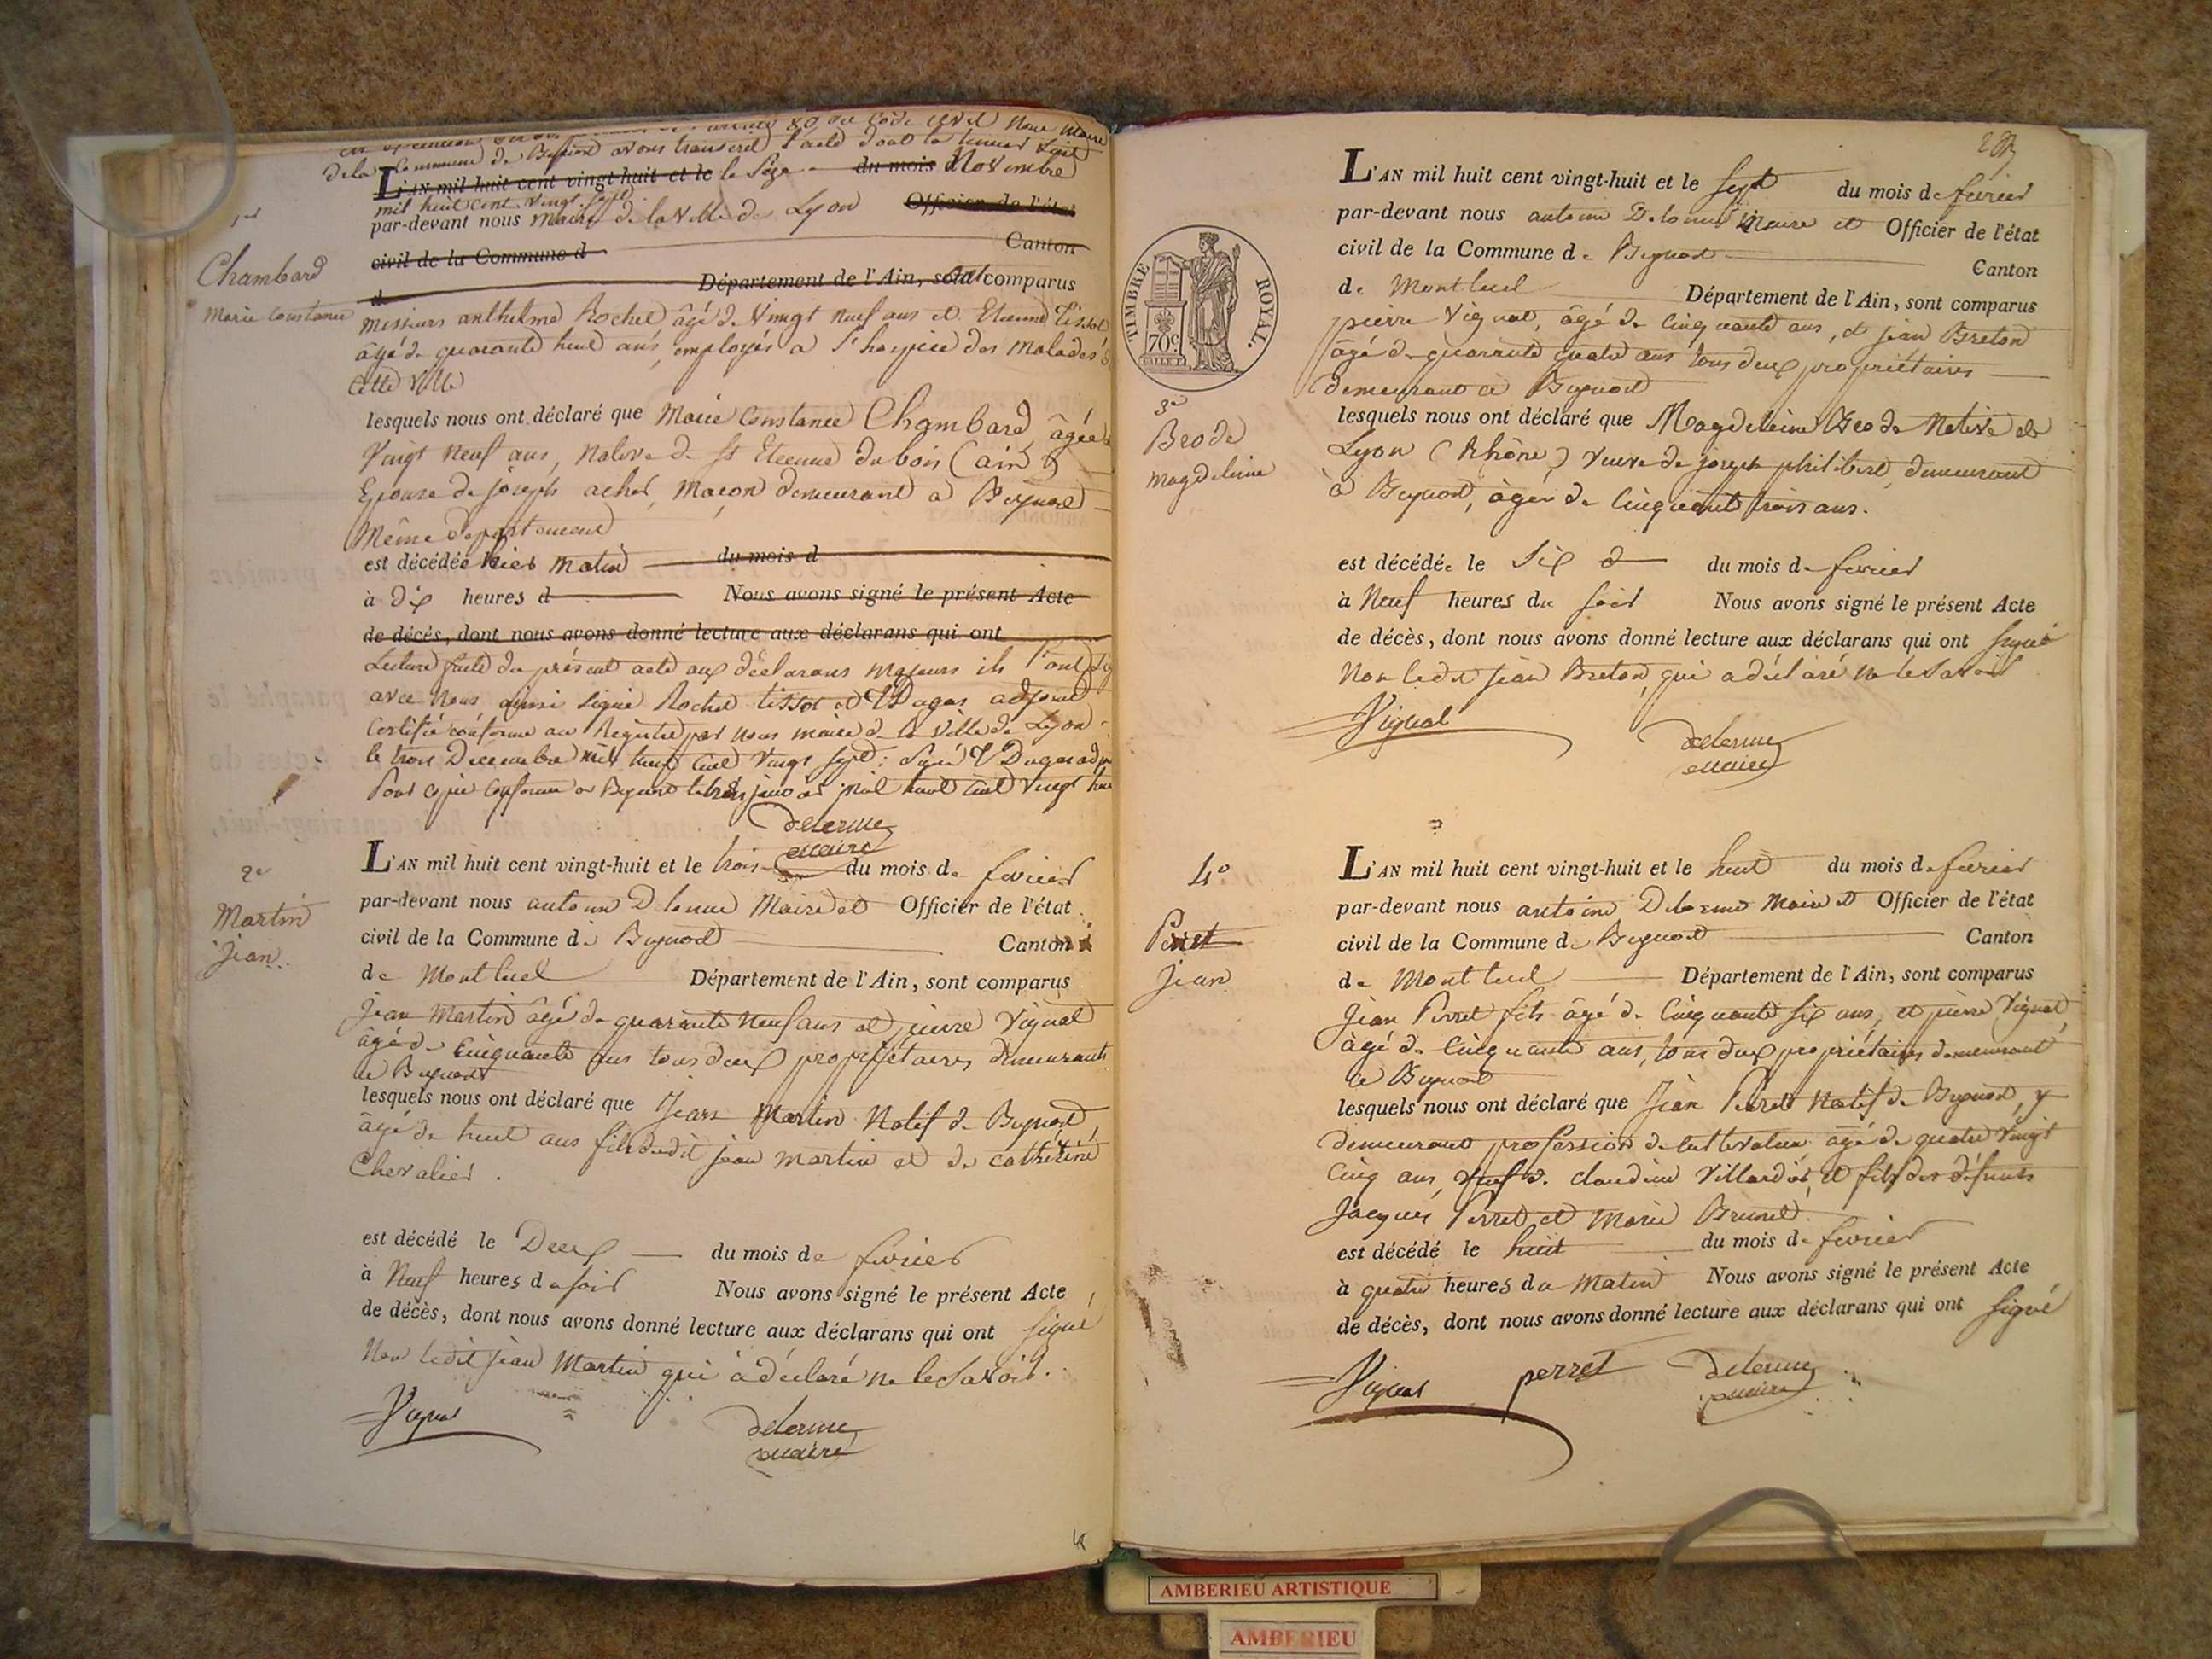 de la Commune de Beynost avons transcrit l'acte dont la teneur suit
L'AN mil huit cent vingt-huit et le le Seize du mois d Novembre
mil huit cent vingt sept
par-devant nous maire de la ville de Lyon Officier de l'état
civil de la Commune d Canton
d Département de l'Ain, sont comparus
1er
Chambard
Marie Constance
Messieurs anthelme Rochet âgé de vingt neuf ans et Etienne Tissot
âgé de quarante huit ans, employés a l'hospice des Malades de
Cette ville
lesquels nous ont déclaré que Marie Constance Chambard âgée de
Vingt Neuf ans, Native de St Etienne du bois (ain)
Epouse de joseph achet, Maçon demeurant a Beynost
Même departement
est décédée hier matin du mois d
à Dix heures d Nous avons signé le présent Acte
de décès, dont nous avons donné lecture aux déclarans qui ont
Lecture faite du présent acte aux déclarans majeurs ils l'ont
avec Nous ainsi Signé Rochet tissot et Dugas adjoint
Certifié conforme au Registre par nous maire de la ville de Lyon
le trois Decembre mil huit cent vingt sept : Signé Dugas
Pour copie conforme a Beynost le trois janvier mil huit cent vingt huit
delerme
maire
2e
Martin
Jean
L'AN mil huit cent vingt-huit et le trois du mois de fevrier
par-devant nous antoine Delerme Maire et Officier de l'état
civil de la Commune de Beynost Canton
de Montluel Département de l'Ain, sont comparus
Jean Martin âgé de quarante Neuf ans et pierre Vignat
âgé de Cinquante ans tous deux propriétaires demeurants
a Beynost
lesquels nous ont déclaré que Jean Martin Natif de Beynost
âgé de huit ans fils dudit jean Martin et de catherine
Chevalier.
est décédé le Deux du mois de fevrier
à Neuf heures du soir Nous avons signé le présent Acte
de décès, dont nous avons donné lecture aux déclarans qui ont signé
Non ledit jean Martin qui a déclaré ne le Savoir.
Vignat delerme
maire
L'AN mil huit cent vingt-huit et le sept du mois de fevrier
par-devant nous antoine Delerme Maire et Officier de l'état
civil de la Commune de Beynost Canton
de Montluel Département de l'Ain, sont comparus
TIMBRE ROYAL.
70c
pierre Vignat, âgé de Cinquante ans, et jean Breton
âgé de quarante quatre ans tous deux propriétaires
demeurant a Beynost
3e
Brode
magdeleine
lesquels nous ont déclaré que Magdeleine Brode Native de
Lyon (Rhône) veuve de joseph philibert, demeurant
à Beynost, âgée de Cinquante trois ans.
est décédée le Six du mois de fevrier
à Neuf heures du soir Nous avons signé le présent Acte
de décès, dont nous avons donné lecture aux déclarans qui ont signé
Non ledit jean Breton, qui a déclaré ne le Savoir
Vignat delerme
maire
4°
Perret
Jean
L'AN mil huit cent vingt-huit et le huit du mois de fevrier
par-devant nous antoine Delerme Maire et Officier de l'état
civil de la Commune de Beynost Canton
de Montluel Département de l'Ain, sont comparus
Jean Perret fils âgé de Cinquante six ans, et pierre Vignat
âgé de Cinquante ans, tous deux propriétaires demeurant
a Beynost
lesquels nous ont déclaré que Jean Perret Natif de Beynost, y
demeurant profession de cultivateur âgé de quatre vingt
Cinq ans, veuf de claudine Villardot, et fils des défunts
Jacques Perret et Marie Brunet.
est décédé le huit du mois de fevrier
à quatre heures du Matin Nous avons signé le présent Acte
de décès, dont nous avons donné lecture aux déclarans qui ont signé
Vignat perret delerme
maire
AMBERIEU ARTISTIQUE
AMBERIEU